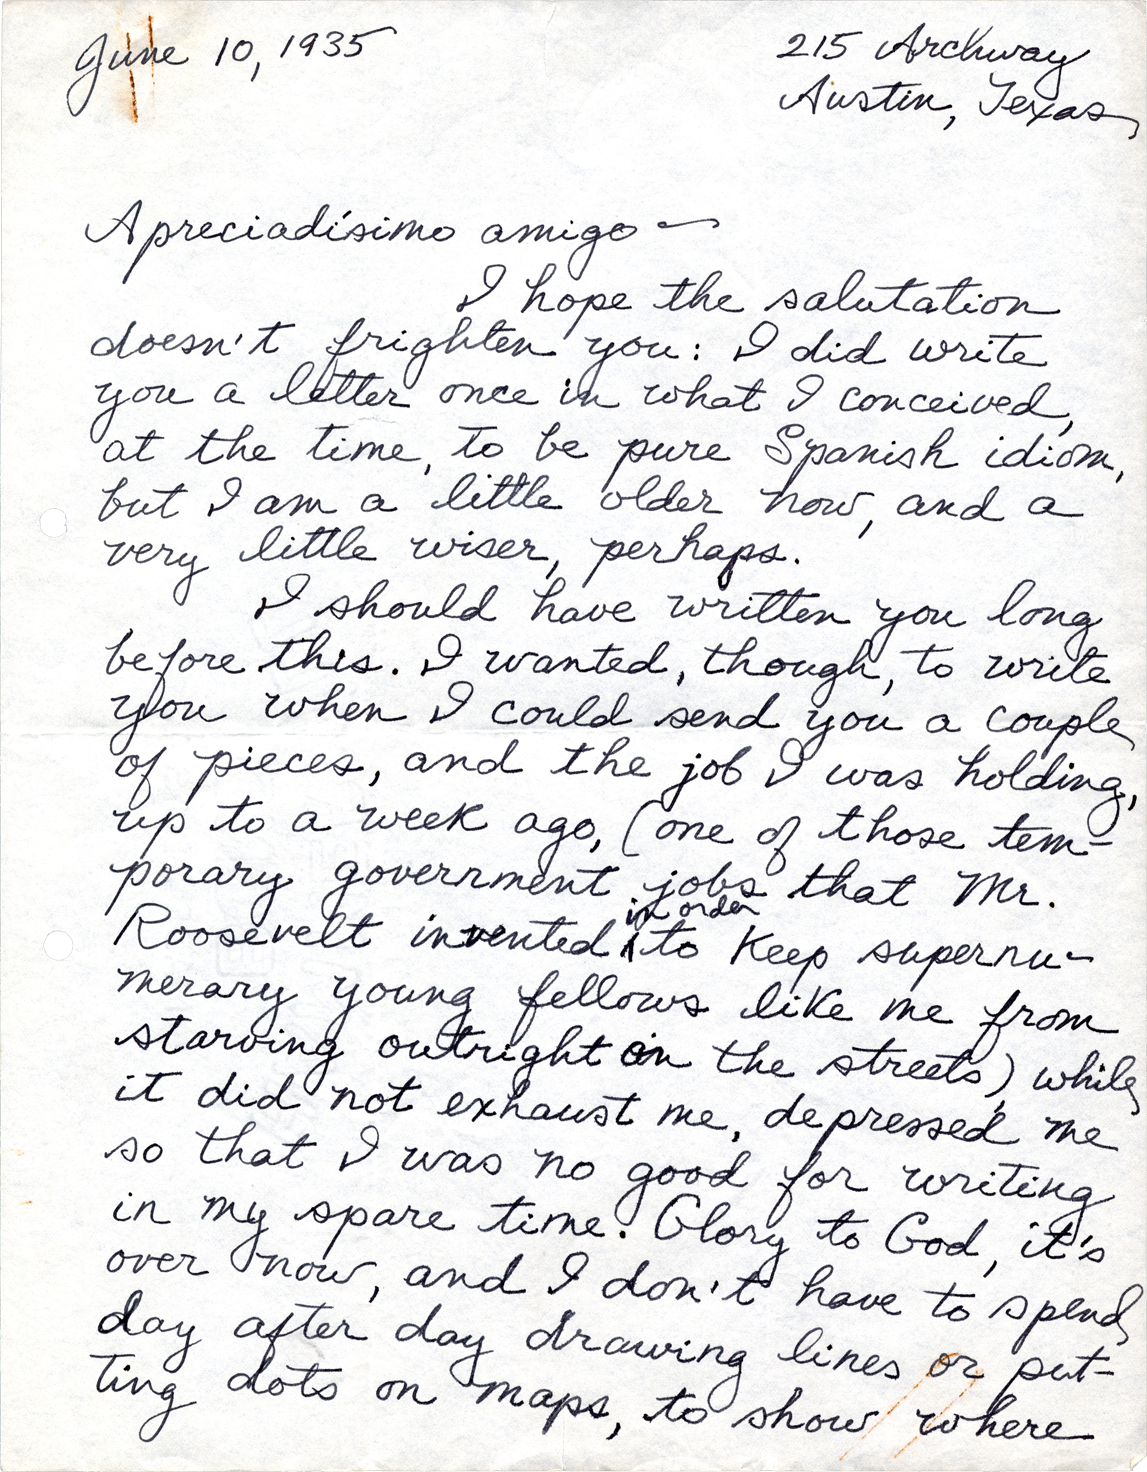 June 10, 1935
215 Archway
Austin, Texas
Apreciadísimo amigo —
I hope the salutation
doesn't frighten you: I did write
you a letter once in what I conceived,
at the time, to be pure Spanish idiom,
but I am a little older now, and a
very little wiser, perhaps.
I should have written you long
before this. I wanted, though, to write
you when I could send you a couple
of pieces, and the job I was holding,
up to a week ago, (one of those tem-
porary government jobs that Mr.
in order
Roosevelt invented to keep supernu-
merary young fellows like me from
starving outright on the streets) while
it did not exhaust me, depressed me
so that I was no good for writing
in my spare time. Glory to God, it's
over now, and I don't have to spend
day after day drawing lines or put-
ting dots on maps, to show where